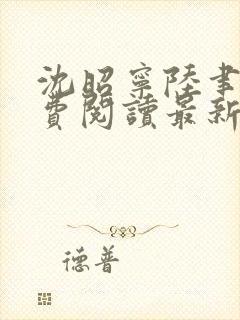 沈昭寧陸聿
費閱讀最新
德普